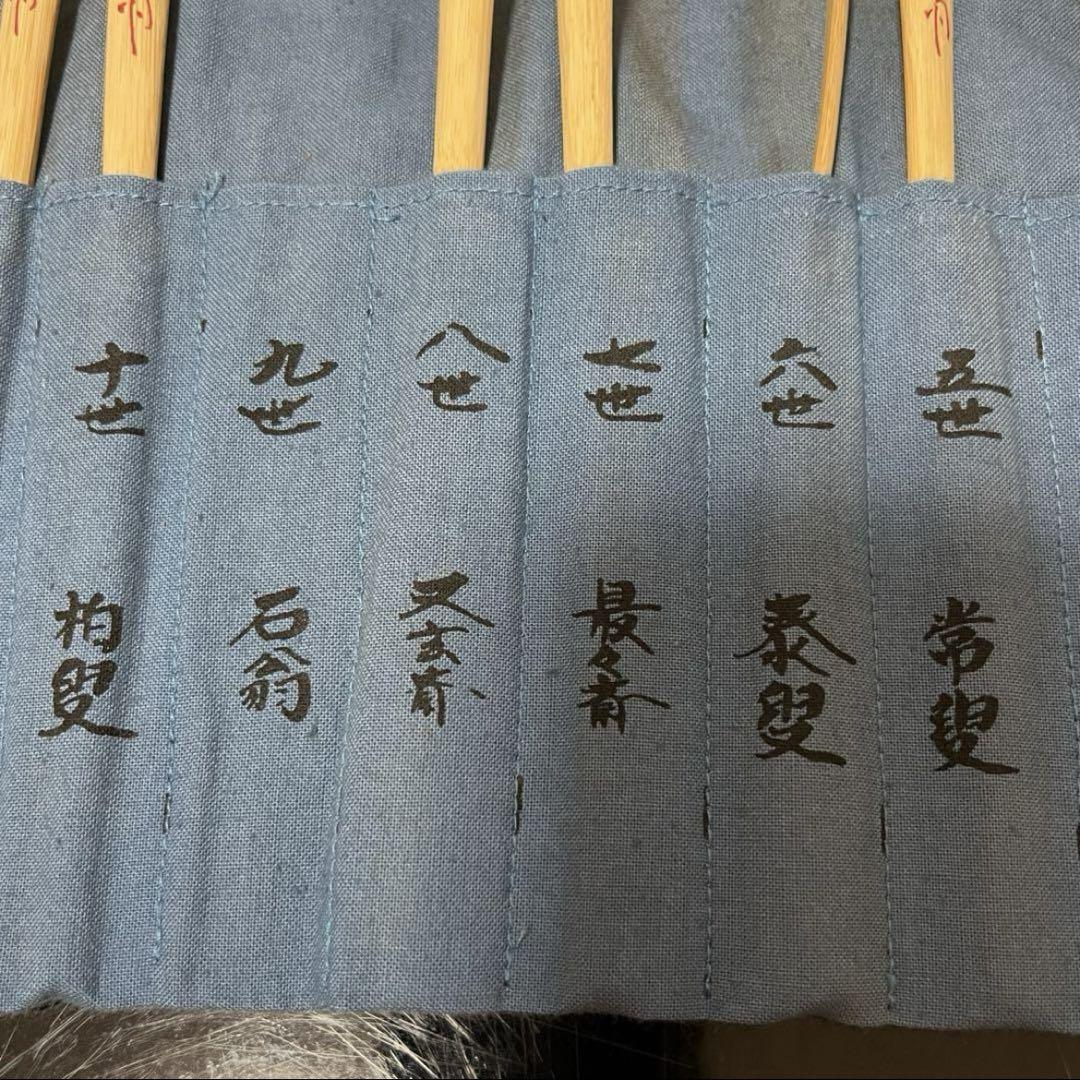 五世 常叟
六世 泰叟
七世 最々斎
八世 又玄斎
九世 石翁
十世 柏叟